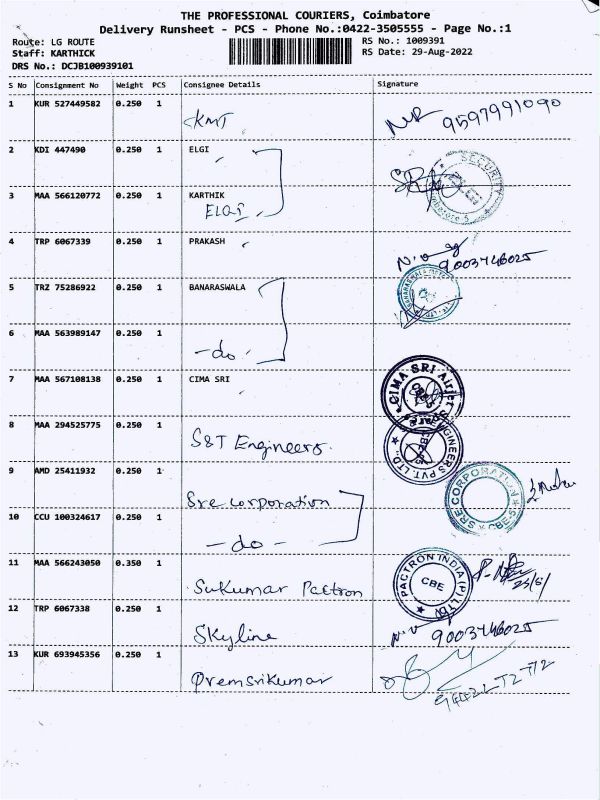 THE PROFESSIONAL COURIERS, Coimbatore
Delivery Runsheet - PCS - Phone No.:0422-3505555 - Page No.:1
Route: LG ROUTE
Staff: KARTHICK
DRS No.: DCJB100939101
RS No.: 1009391
RS Date: 29-Aug-2022
S No Consignment No Weight PCS Consignee Details Signature
1 KUR 527449582 0.250 1
KMT 9597991090
2 KDI 447490 0.250 1 ELGI
SECURITY
3 MAA 566120772 0.250 1 KARTHIK
ELGI
4 TRP 6067339 0.250 1 PRAKASH
9003746025
5 TRZ 75286922 0.250 1 BANARASWALA
6 MAA 563989147 0.250 1
- do -
7 MAA 567108138 0.250 1 CIMA SRI
CIMA SRI Airjet
8 MAA 294525775 0.250 1
S&T Engineers.
ENGINEERS PVT. LTD.,
9 AMD 25411932 0.250 1
Sre corporation
SRE CORPORATION CBE-5
10 CCU 100324617 0.250 1
- do -
11 MAA 566243050 0.350 1
Sukumar Pactron
PACTRON INDIA (P) LTD
CBE
12 TRP 6067338 0.250 1
Skyline
9003746025
13 KUR 693945356 0.250 1
Premsrikumar